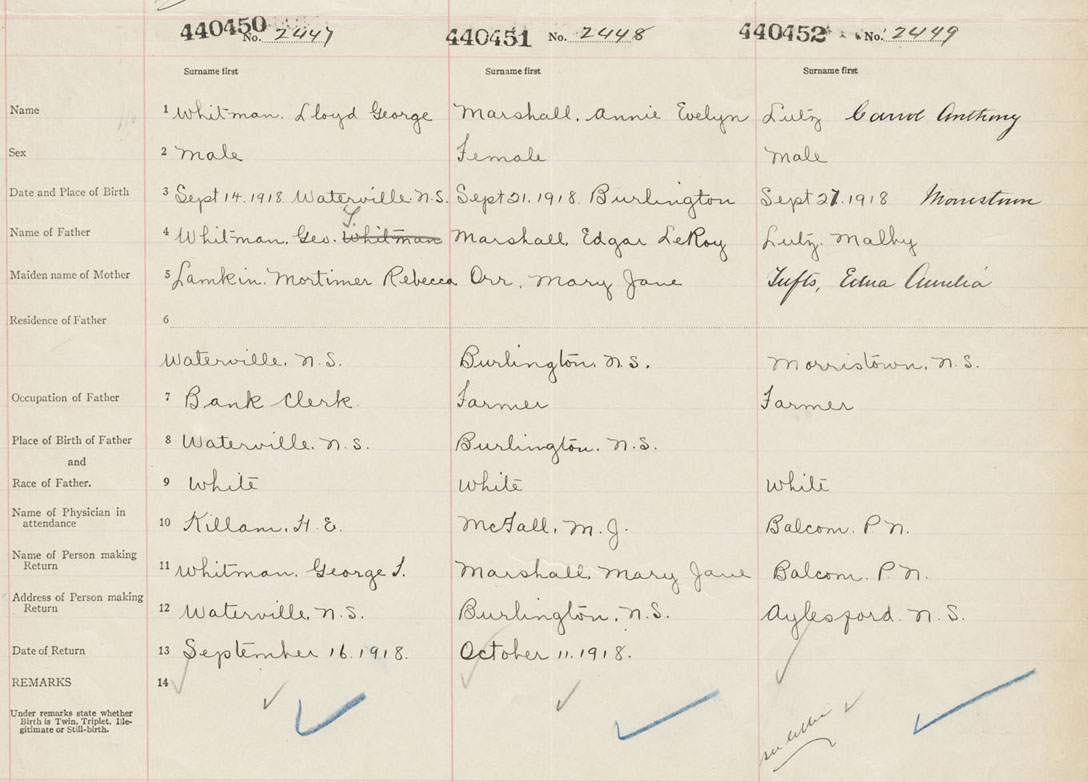 440450 No. 2447 440451 No. 2448 440452 No. 2449
Surname first Surname first Surname first
Name 1 Whitman. Lloyd George Marshall. Annie Evelyn Lutz Carrol Anthony
Sex 2 Male Female Male
Date and Place of Birth 3 Sept 14.1918. Waterville. N.S. Sept 21.1918. Burlington Sept 27.1918 Morristown
T.
Name of Father 4 Whitman. Geo. Whitman Marshall. Edgar LeRoy Lutz. Malby
Maiden name of Mother 5 Lamkin. Mortimer Rebecca Orr. Mary Jane Tufts, Edna Aurelia
Residence of Father 6
Waterville. N.S. Burlington. N.S. Morristown. N.S.
Occupation of Father 7 Bank Clerk. Farmer Farmer
Place of Birth of Father 8 Waterville. N.S. Burlington. N.S.
and
Race of Father. 9 White White White
Name of Physician in
attendance 10 Killam. H.E. McFall. M.J. Balcom. P.N.
Name of Person making
Return 11 Whitman. George T. Marshall. Mary Jane Balcom. P.N.
Address of Person making
Return 12 Waterville. N.S. Burlington. N.S. Aylesford. N.S.
Date of Return 13 September 16.1918. October 11.1918.
REMARKS 14
Under remarks state whether
Birth is Twin, Triplet, Ille-
gitimate or Still-birth.
see letter